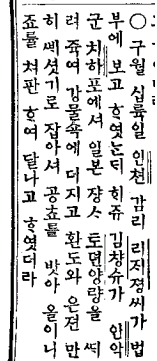 ○ 구월 십육일 인쳔 감리 리지졍씨가 법
부에 보고 ᄒᆞ엿ᄂᆞᆫᄃᆡ ᄒᆡ쥬 김창슈가 안악
군 치하포에서 일본 쟝ᄉᆞ 토뎐양량을 ᄯᅢ
려 쥭여 강물속에 더지고 환도와 은젼 만
히 ᄲᅢ셧기로 잡아셔 공쵸를 밧아 올이니
죠률 쳐판 ᄒᆞ여 달나고 ᄒᆞ엿더라